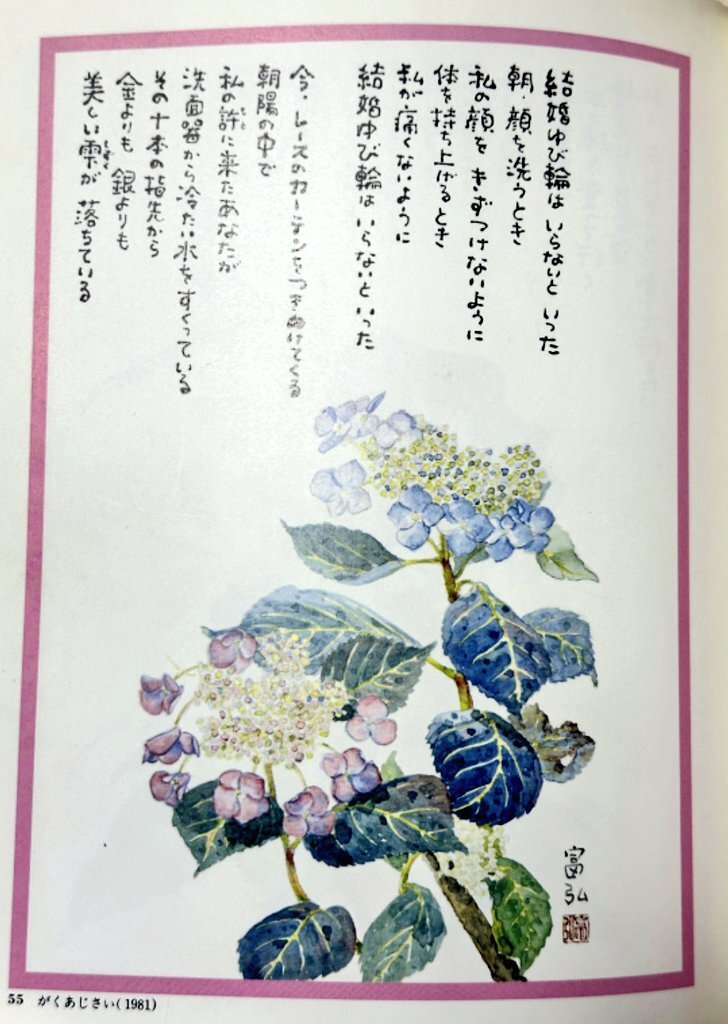 結婚ゆび輪はいらないといった
朝、顔を洗うとき
私の顔をきずつけないように
体を持ち上げるとき
私が痛くないように
結婚ゆび輪はいらないといった
今、レースのカーテンをつきぬけてくる
朝陽の中で
私の許に来たあなたが
もと
洗面器から冷たい水をすくっている
その十本の指先から
金よりも 銀よりも
美しい雫が 落ちている
しずく
富弘
55 がくあじさい(1981)